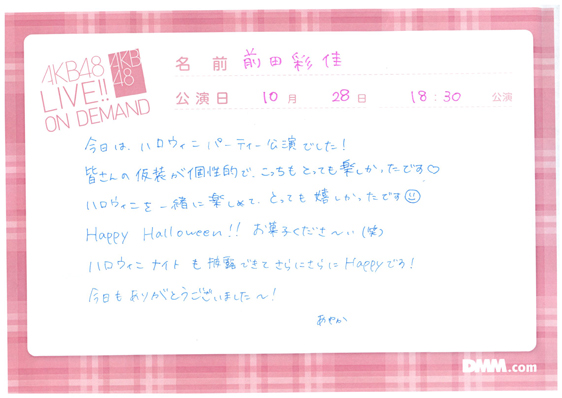 AKB48
LIVE!!
ON DEMAND
AKB
48
名前 前田彩佳
公演日 10月 28日 18:30 公演
今日は、ハロウィンパーティー公演でした！
皆さんの仮装が個性的で、こっちもとっても楽しかったです♡
ハロウィンを一緒に楽しめて、とっても嬉しかったです☺
Happy Halloween!! お菓子くださ〜い(笑)
ハロウィンナイトも披露できてさらにさらにHappyでう！
今日もありがとうございました〜！
あやか
DMM.com